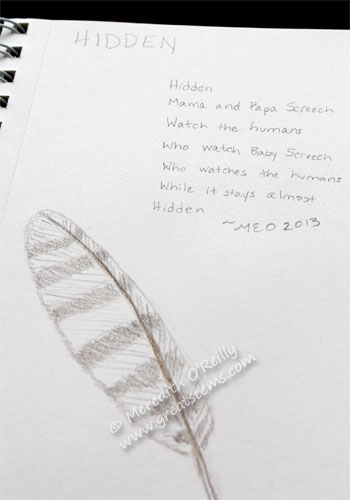 HIDDEN
Hidden
Mama and Papa Screech
Watch the humans
Who watch Baby Screech
Who watches the humans
While it stays almost
Hidden
~MEO 2013
© Meredith O'Reilly
www.greatstems.com